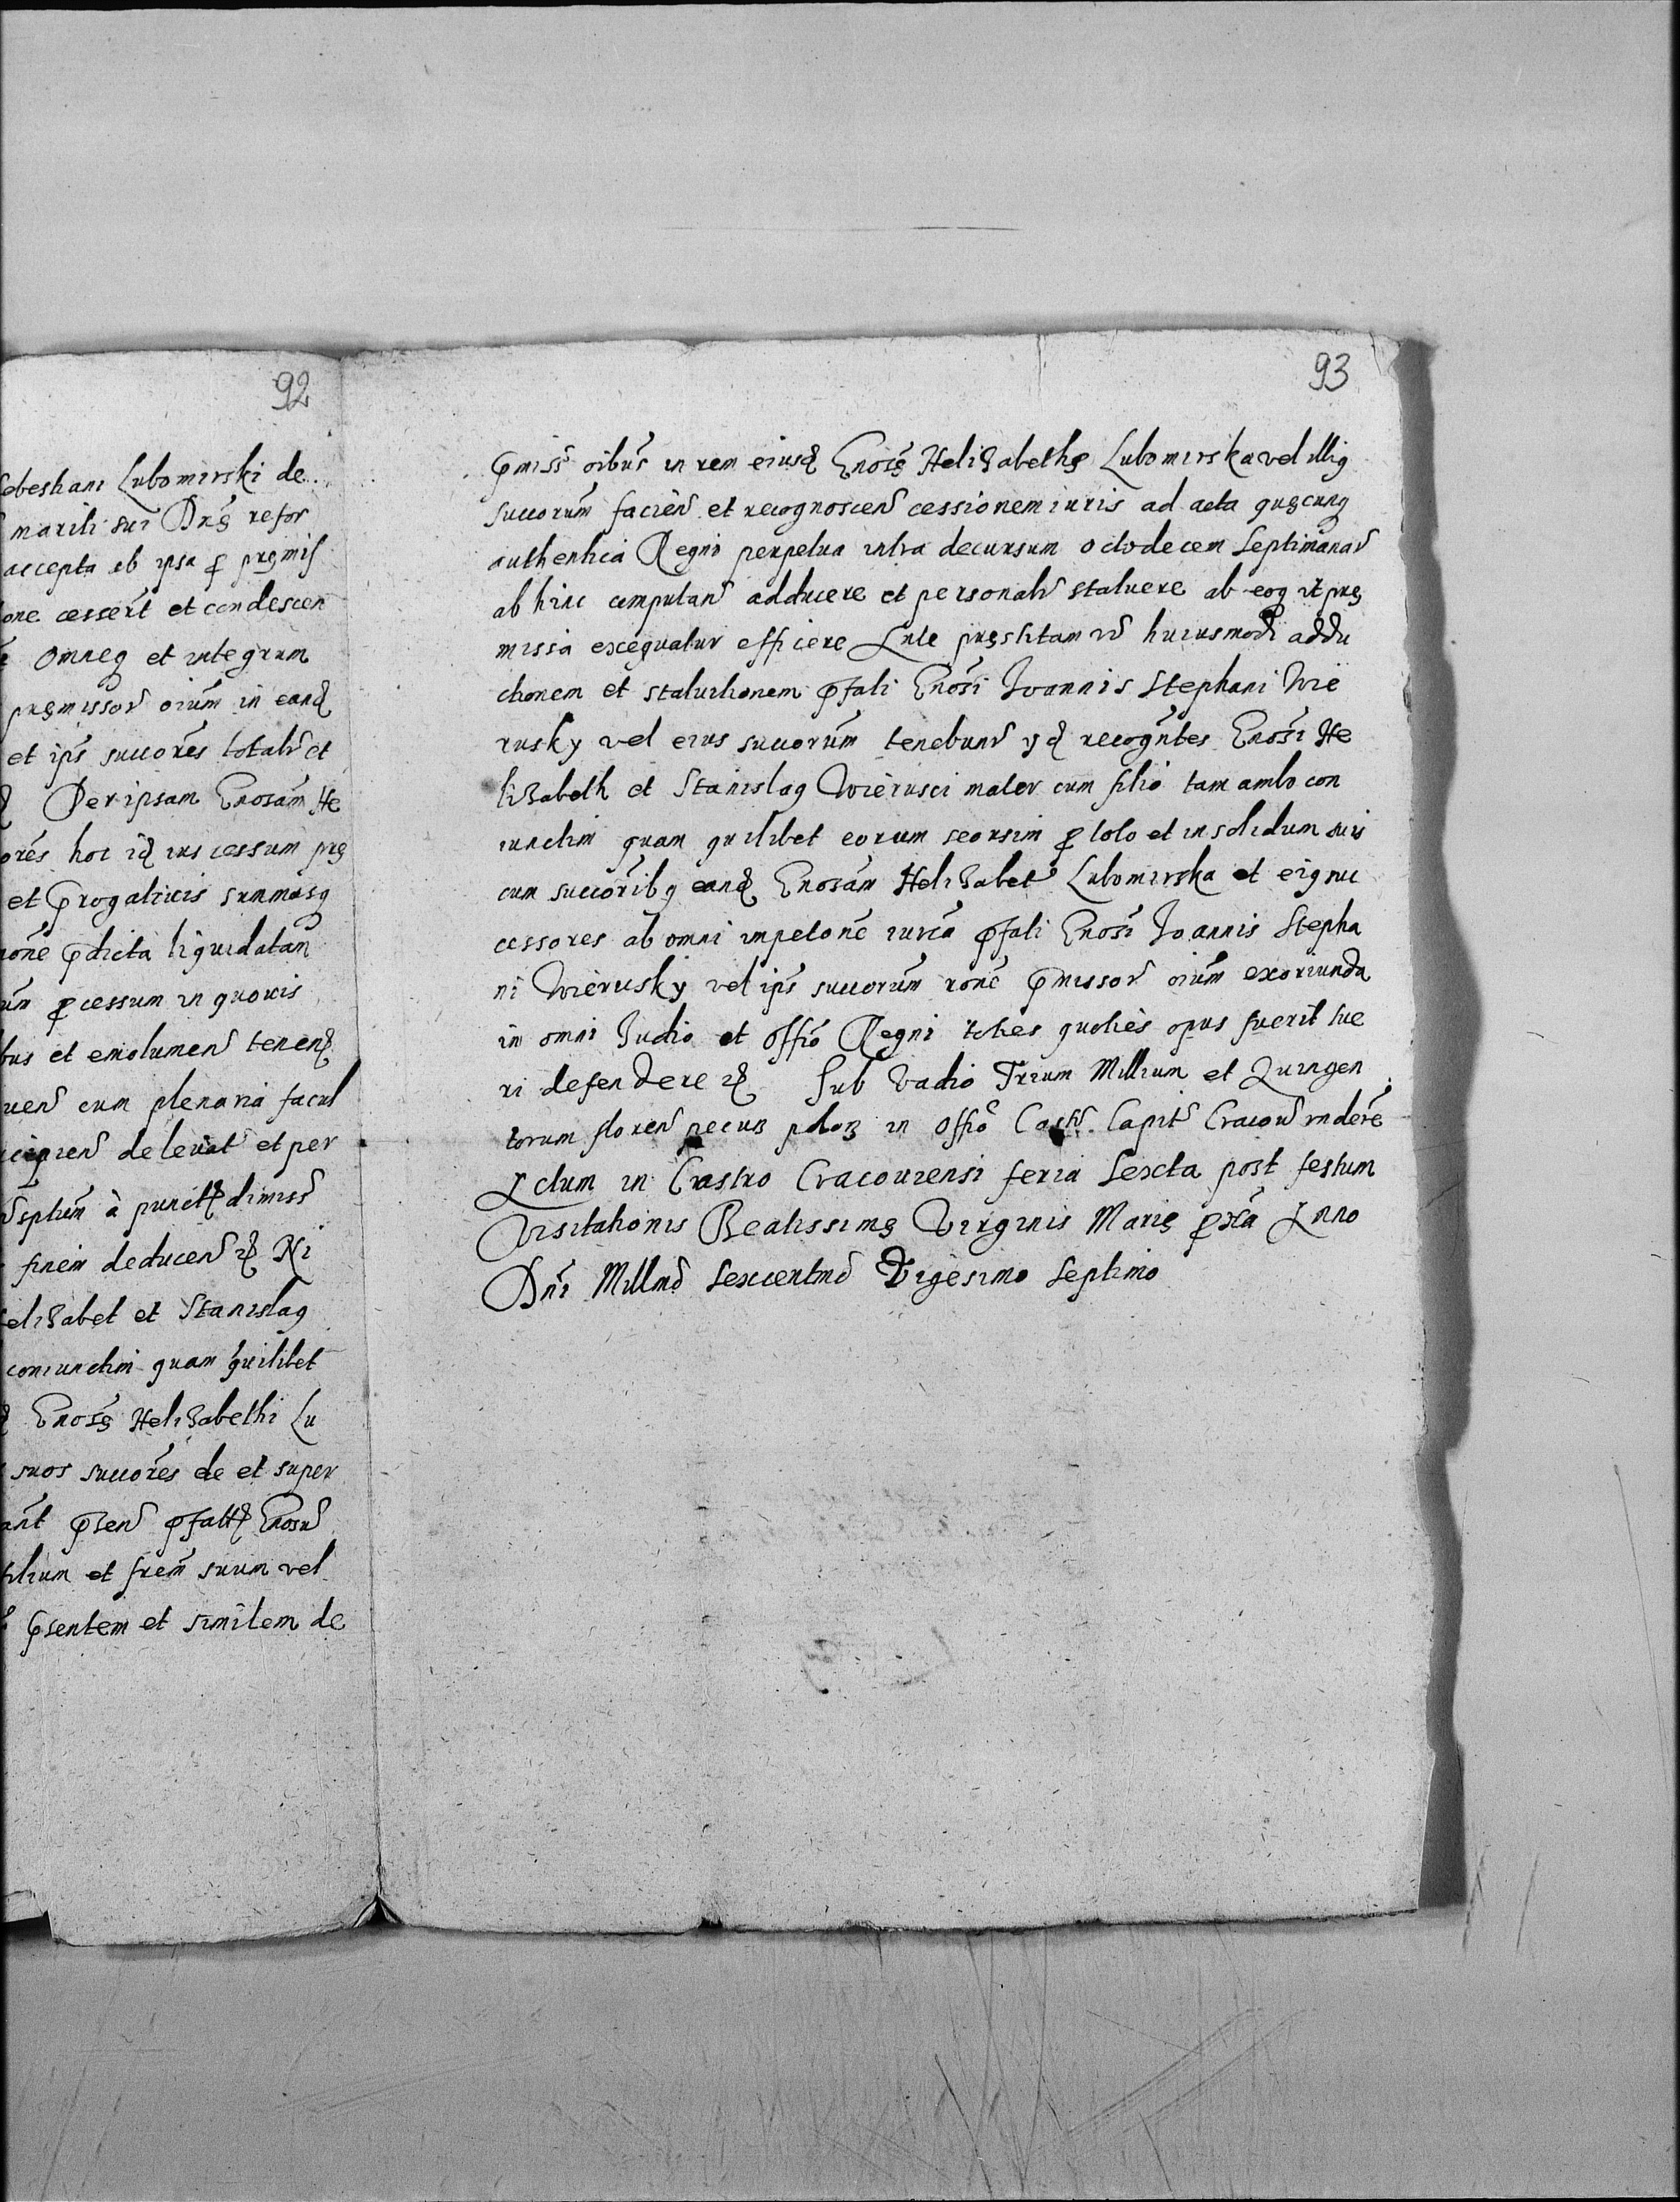 92
ebestiani Lubomirski de
mariti sui Dnę refor
accepta ab ipsa ꝓ pręmiſ
one cessert et condescen
Omneq et integrum
pręmissor oium in eand
et ips succores totalr et
Per ipsam Gnosam He
ores hoc id ius cessum prę
et Progativis summasq
rone pdicta liquidatam
um ꝓcessum in quovis
bus et emolumen tenen
uen cum plenaria facul
de levat et per
septum à punct dimiss
finem deducen Ni
elizabet et Stanislaq
coniunctim quam quilibet
Gnosę Helizabethi Lu
suos succores de et super
ant psen pfatt Gnosu
filium et frem suum vel
psentem et similem de
93
pmiss oibus in rem eiusd Gnosę Helizabethę Lubomirska vel illiq
succorum facien et recognoscen cessionem iuris ad acta quęcunq
authentica Regni perpetua intra decursum octodecem Septimanar
ab hinc computan adducere et personalr statuere ab eoq ut prę
missa exequatur efficere Ante pręstitam v huiusmodi addu
ctionem et statuitionem pfati Gnosi Joannis Stephani Wie
rusky vel eius succorum tenebunr yd recogntes Gnosi He
lizabeth et Stanislaq Wierusci mater cum filio tam ambo con
iunctim quam quilibet eorum seorsim ꝓ toto et in solidum suis
cum succoribq eand Gnosam Helizabet Lubomirska et eiq suc
cessores ab omni impetone iurea pfati Gnosi Joannis Stepha
ni Wierusky vel ips succorum rone pmissor oium exoriunda
in omni Judio et Offio Regni toties quoties opus fuerit tue
ri defendere Sub Vadio Trium Millium et Quingen
torum floren pecun polon in Offio Castr Capit Cracovien rndere
Actum in Castro Cracoviensi feria Sexta post festum
Visitationis Beatissimę Virginis Marię ꝓxa Anno
Dni Millmo Sexcentmo Vigesimo Septimo